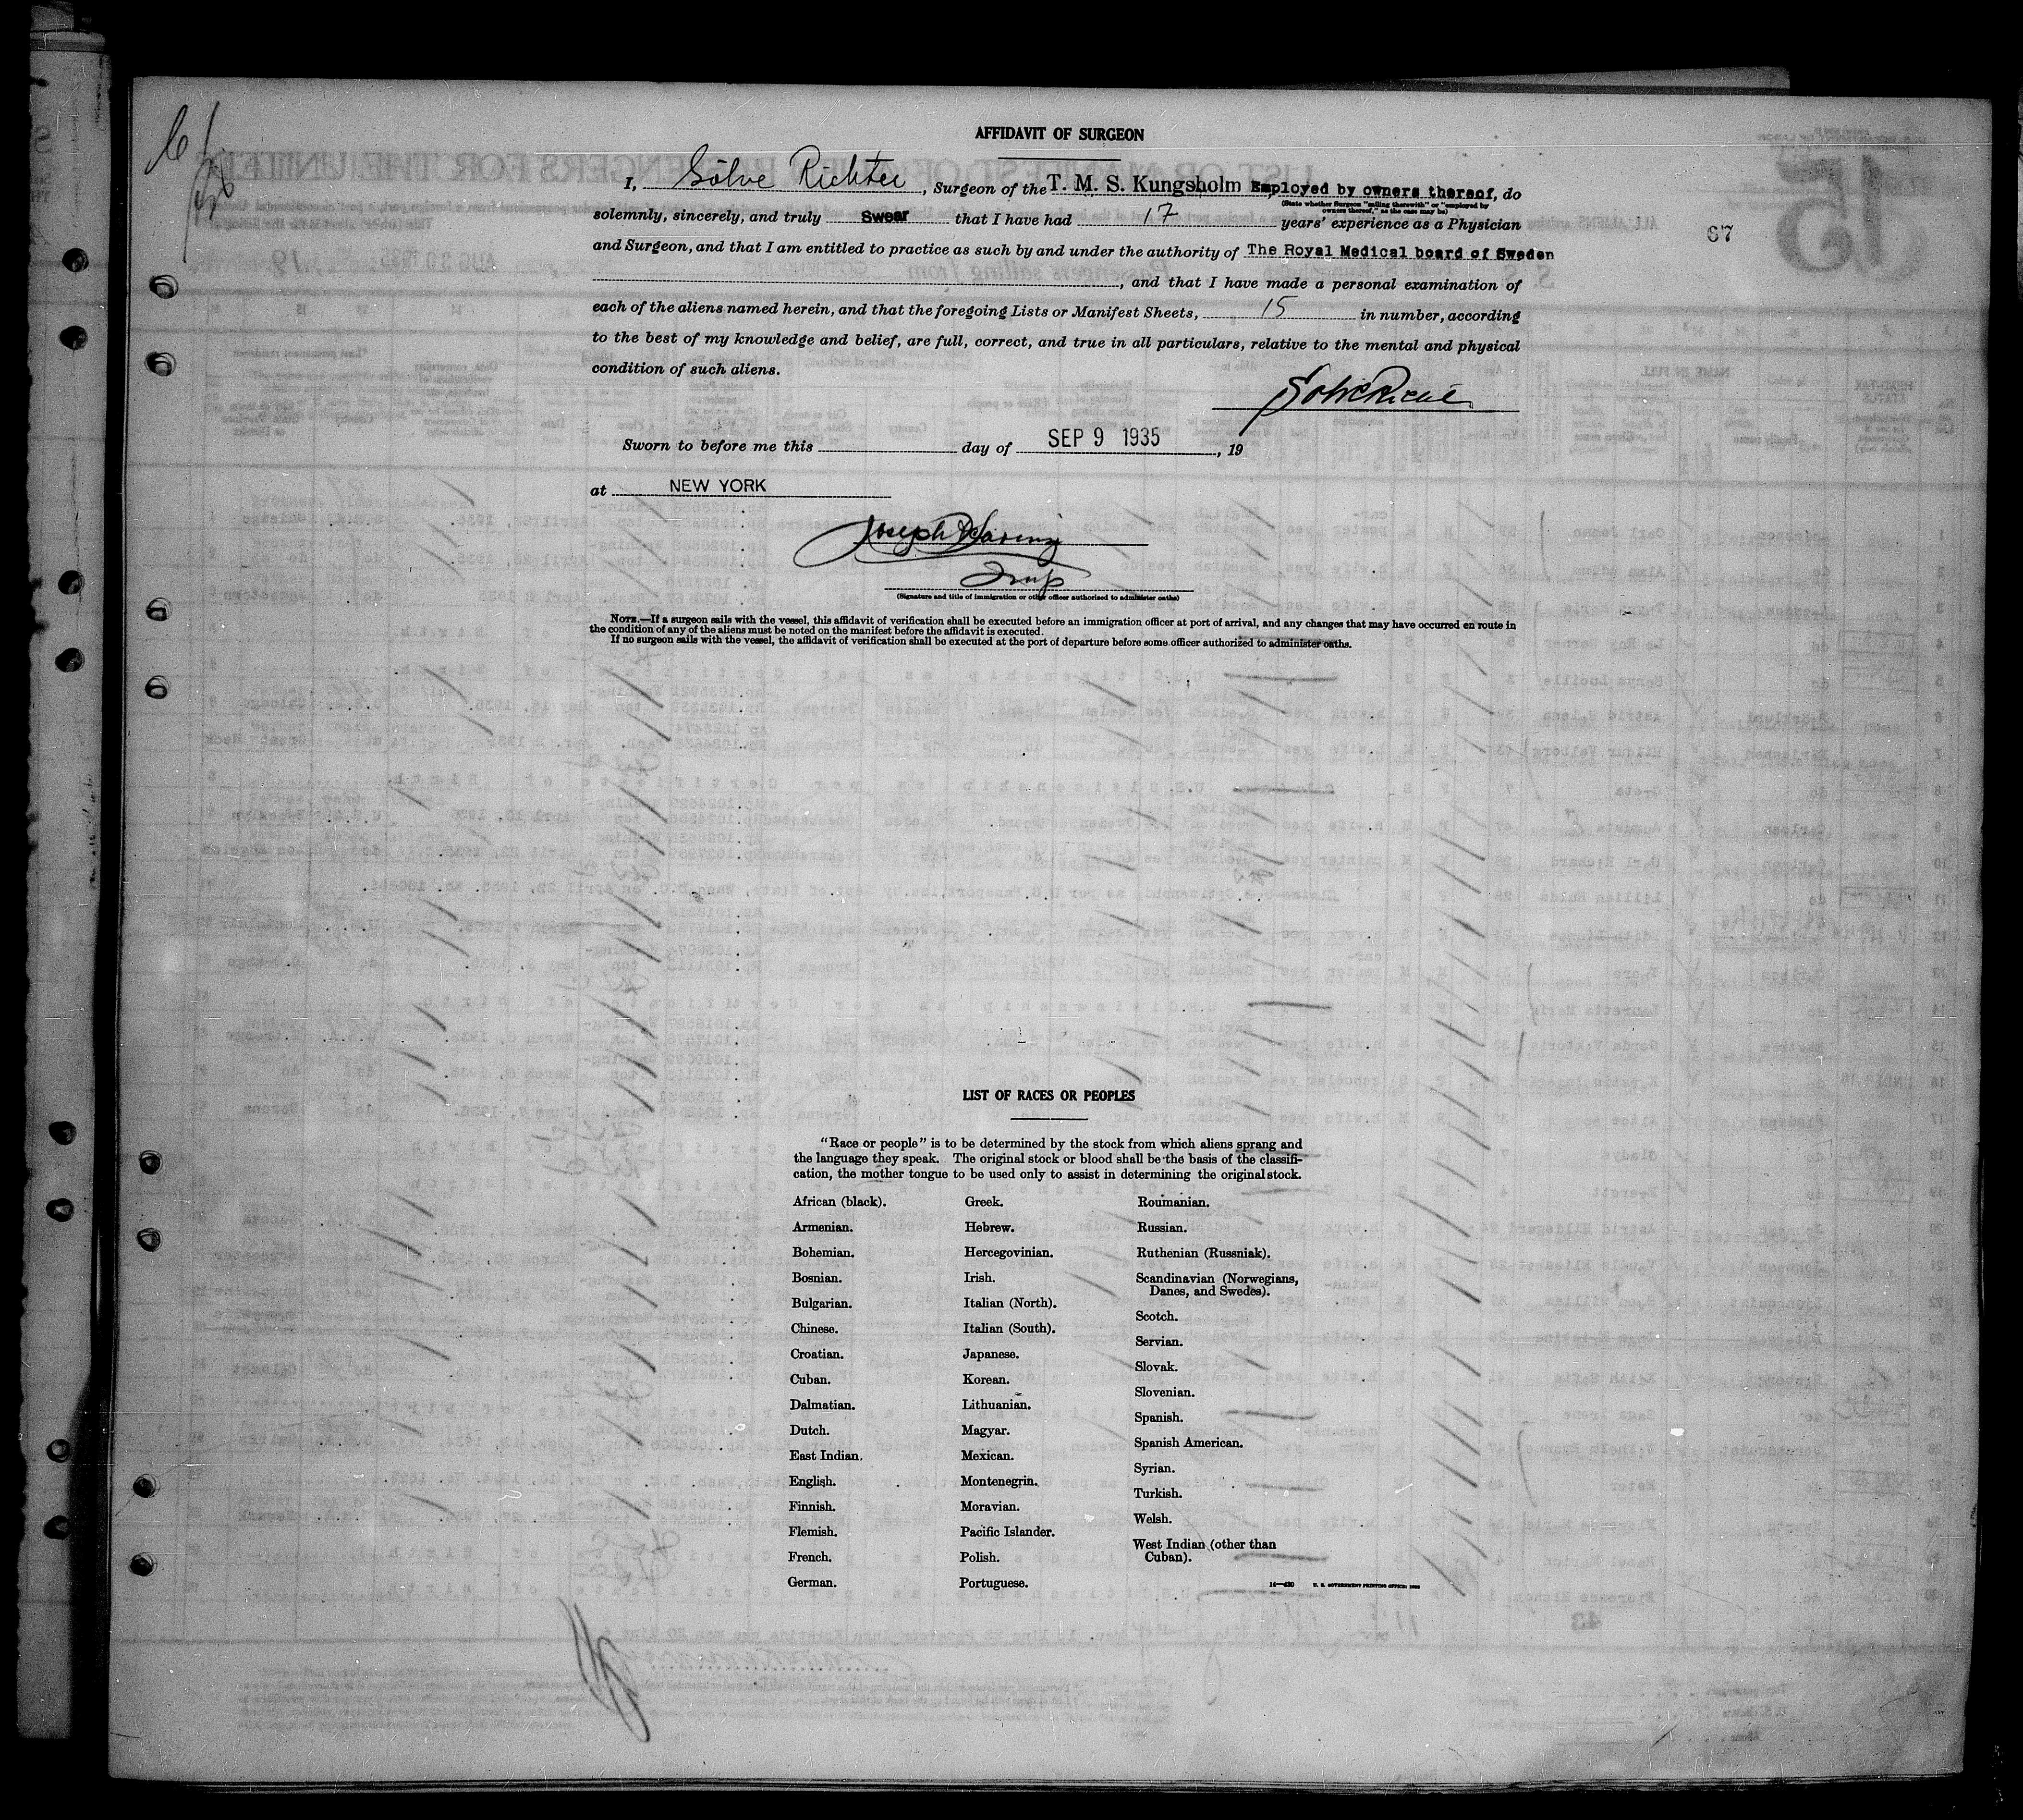 AFFIDAVIT OF SURGEON
I, Sölve Richter, Surgeon of the T. M. S. Kungsholm Employed by owners thereof, do
(State whether Surgeon "sailing therewith" or "employed by
owners thereof," as the case may be)
solemnly, sincerely, and truly Swear that I have had 17 years' experience as a Physician
67
and Surgeon, and that I am entitled to practice as such by and under the authority of The Royal Medical board of Sweden
, and that I have made a personal examination of
each of the aliens named herein, and that the foregoing Lists or Manifest Sheets, 15 in number, according
to the best of my knowledge and belief, are full, correct, and true in all particulars, relative to the mental and physical
condition of such aliens.
Sworn to before me this day of SEP 9 1935, 19
at NEW YORK
Joseph
Insp
(Signature and title of immigration or other officer authorized to administer oaths)
NOTE.—If a surgeon sails with the vessel, this affidavit of verification shall be executed before an immigration officer at port of arrival, and any changes that may have occurred en route in
the condition of any of the aliens must be noted on the manifest before the affidavit is executed.
If no surgeon sails with the vessel, the affidavit of verification shall be executed at the port of departure before some officer authorized to administer oaths.
LIST OF RACES OR PEOPLES
"Race or people" is to be determined by the stock from which aliens sprang and
the language they speak. The original stock or blood shall be the basis of the classifi-
cation, the mother tongue to be used only to assist in determining the original stock.
African (black).
Armenian.
Bohemian.
Bosnian.
Bulgarian.
Chinese.
Croatian.
Cuban.
Dalmatian.
Dutch.
East Indian.
English.
Finnish.
Flemish.
French.
German.
Greek.
Hebrew.
Hercegovinian.
Irish.
Italian (North).
Italian (South).
Japanese.
Korean.
Lithuanian.
Magyar.
Mexican.
Montenegrin.
Moravian.
Pacific Islander.
Polish.
Portuguese.
Roumanian.
Russian.
Ruthenian (Russniak).
Scandinavian (Norwegians,
Danes, and Swedes).
Scotch.
Servian.
Slovak.
Slovenian.
Spanish.
Spanish American.
Syrian.
Turkish.
Welsh.
West Indian (other than
Cuban).
14—430 U. S. GOVERNMENT PRINTING OFFICE: